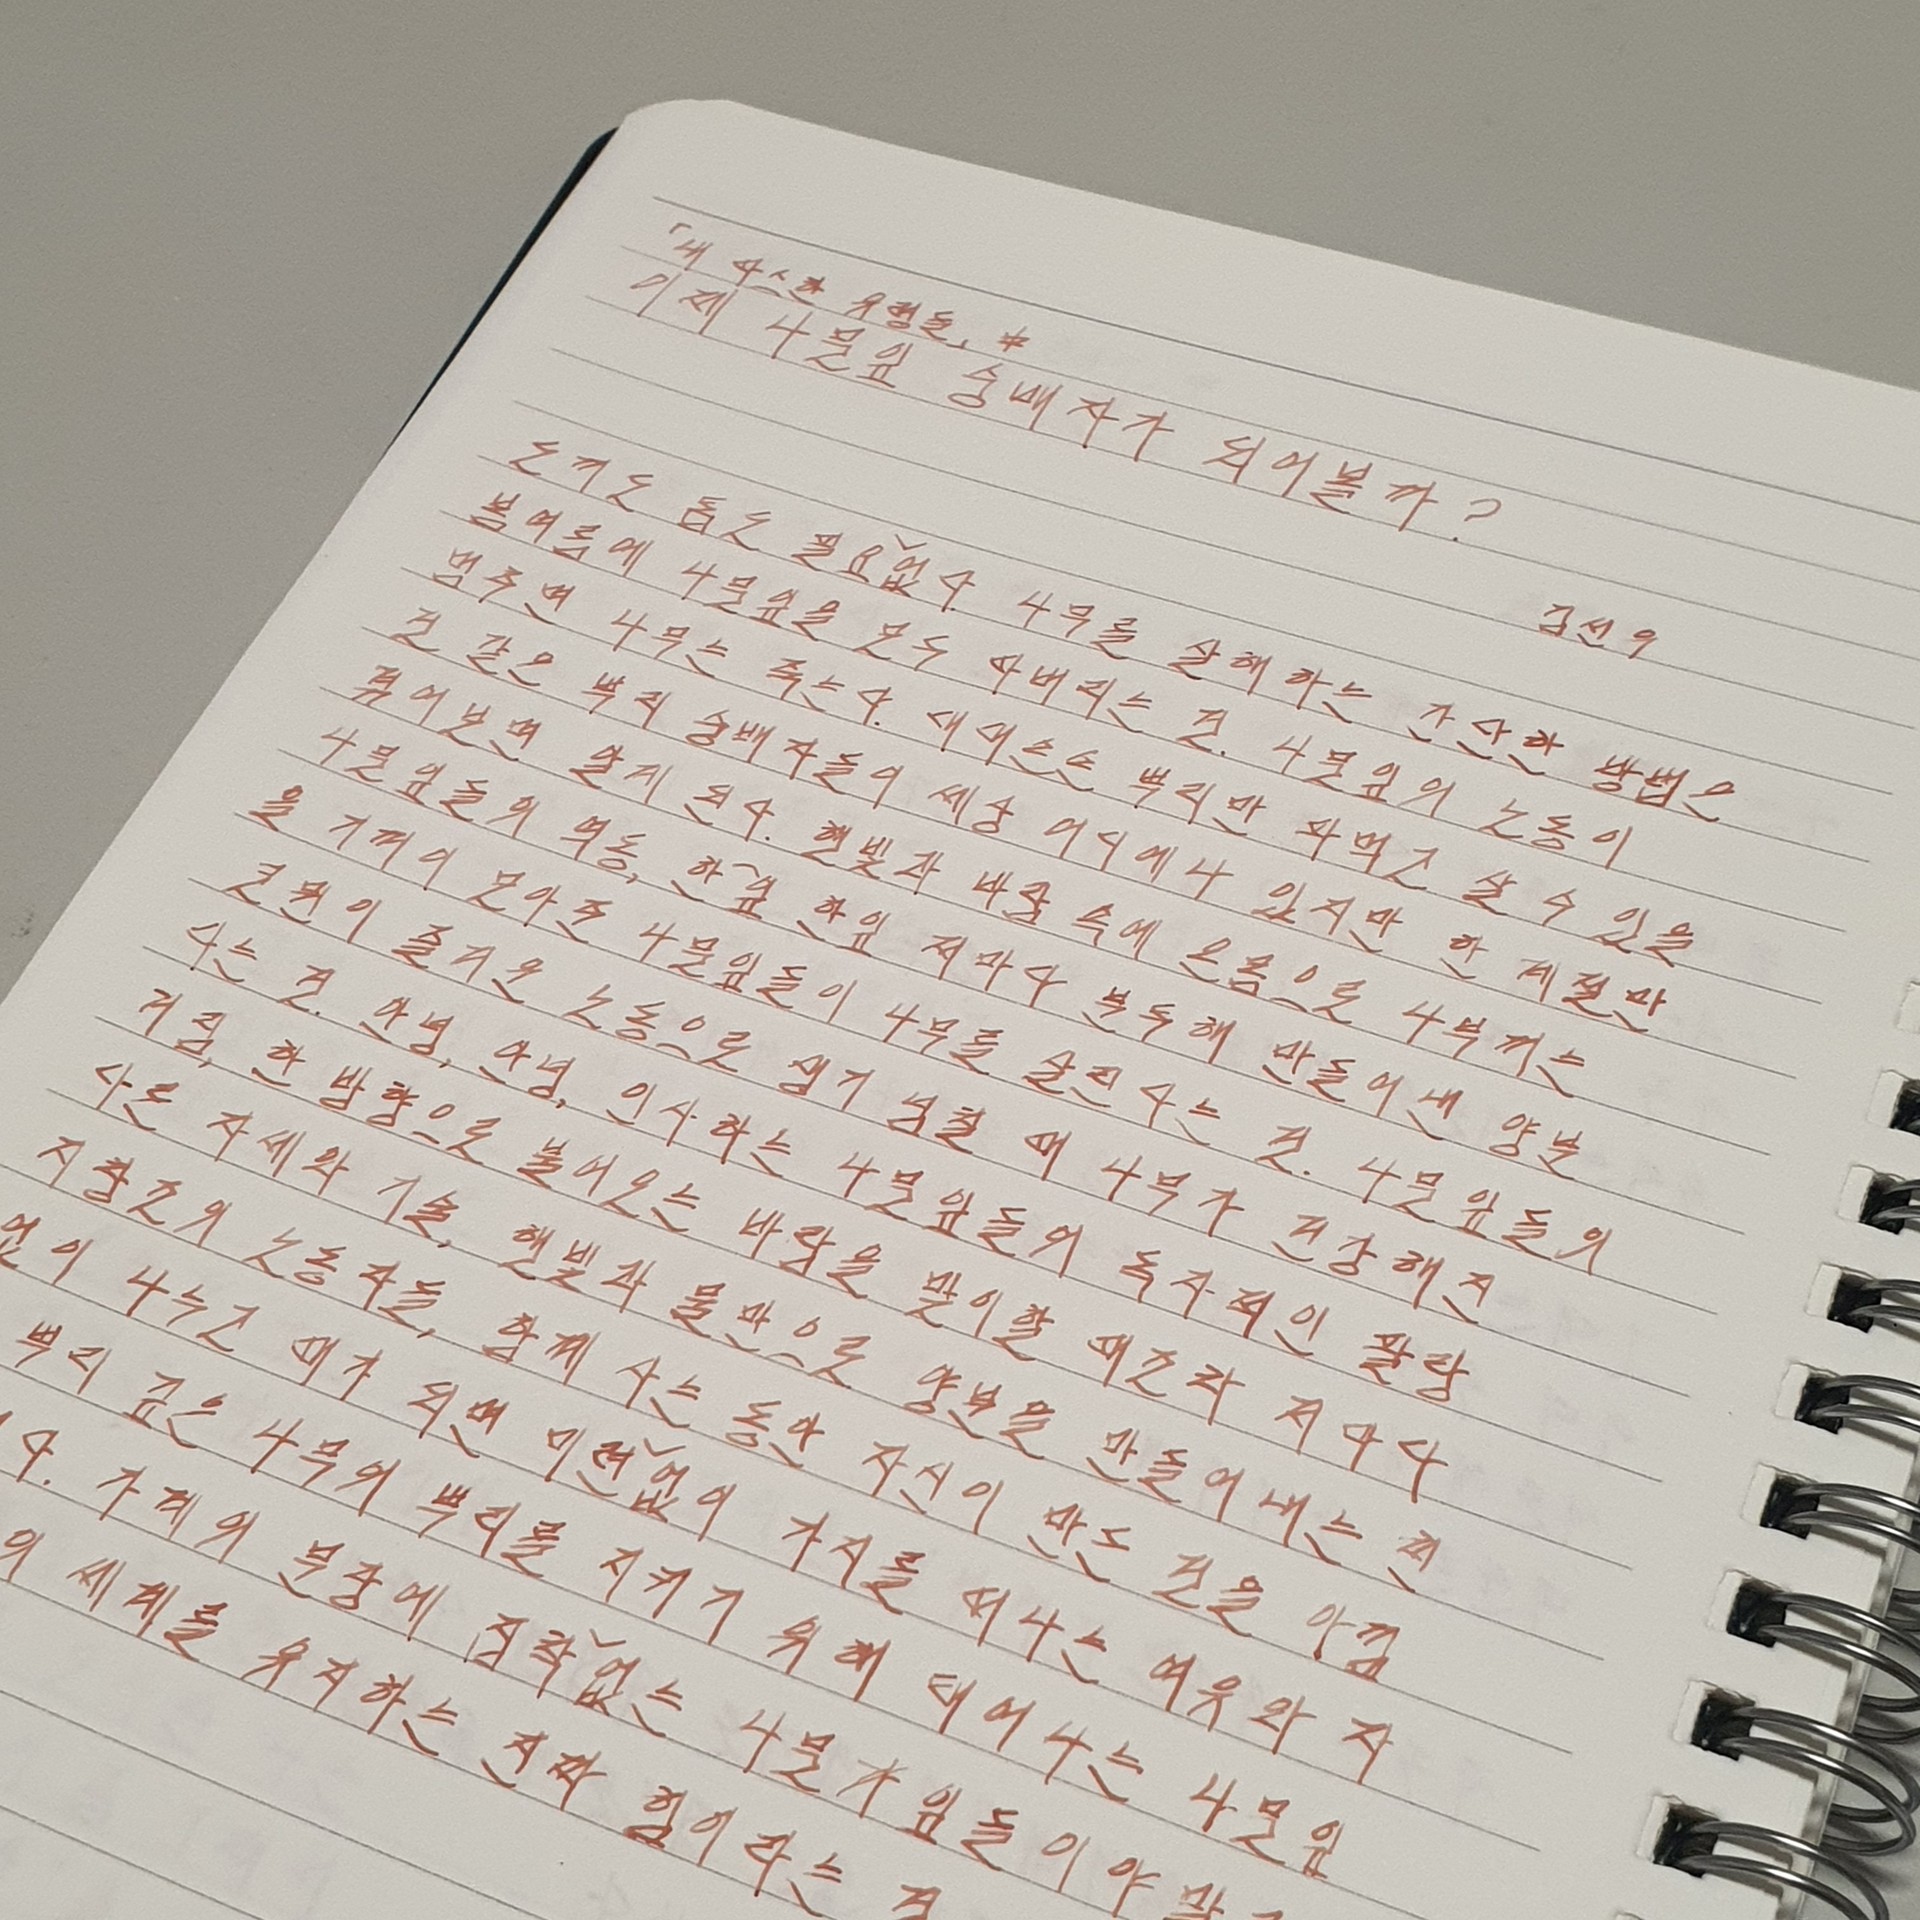 「내 따스한 유령들」 #
이제 나뭇잎 숭배자가 되어볼까?
김선우
도끼도 톱도 필요없다. 나무를 살해하는 간단한 방법은
봄여름에 나뭇잎을 모두 따버리는 것. 나뭇잎의 노동이
멈추면 나무는 죽는다. 대대손손 뿌리만 파먹고 살 수 있을
것 같은 뿌리 숭배자들이 세상 어디에나 있지만 한 계절만
겪어보면 알게 된다. 햇빛과 바람 속에 온몸으로 나부끼는
나뭇잎들의 역동, 한잎 한잎 저마다 분투해 만들어낸 양분
을 기꺼이 모아준 나뭇잎들이 나무를 살린다는 것. 나뭇잎들의
코뮌이 즐거운 노동으로 생기 넘칠 때 나무가 건강해진
다는 것. 안녕, 안녕, 인사하는 나뭇잎들의 독자적인 팔랑
거림, 한 방향으로 불어오는 바람을 맞이할 때조차 저마다
다른 자세와 기술, 햇빛과 물만으로 양분을 만들어내는 진
지창조의 노동자들, 함께 사는 동안 자신이 만든 것을 아낌
없이 나누고 때가 되면 미련없이 가지를 떠나는 여유와 자
뿌리 깊은 나무의 뿌리를 지키기 위해 태어나는 나뭇잎
다. 가계의 문장에 집착없는 나뭇가잎들이야말
의 세계를 유지하는 진짜 힘이라는 것